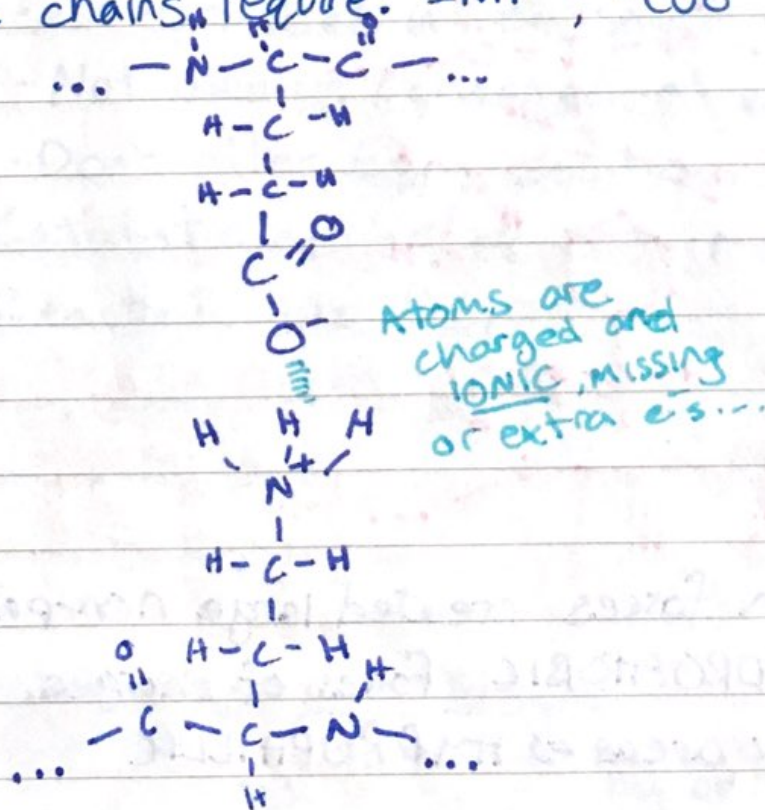 chains require:
... — N — C — C — ...
H — C — H
H — C — H
C = O
O-
Atoms are
charged and
IONIC, missing
or extra e's...
H H H
N+
H — C — H
O H — C — H H
... — C — C — N — ...
H